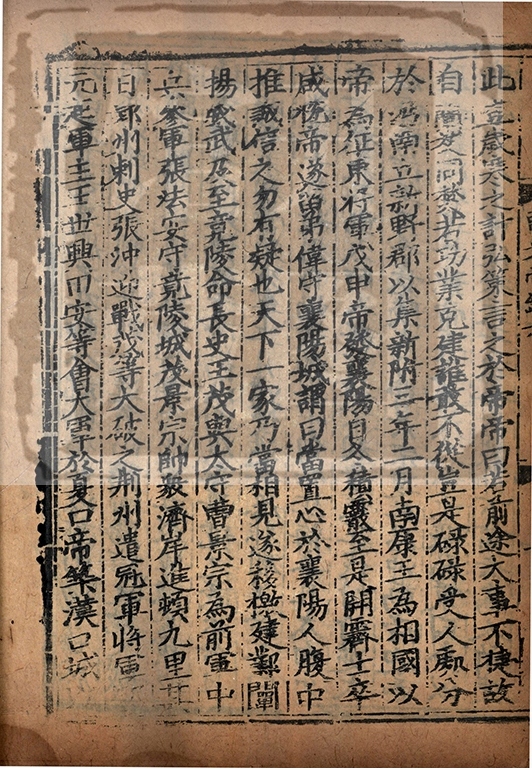 此豈歲寒之計弘策言之於帝帝曰若前途大事不捷故
自蘭艾同焚若功業克建誰敢不從豈是碌碌受人處分
於沔南立新野郡以集新附三年二月南康王為相國以
帝為征東將軍戊申帝發襄陽自冬積霰至是開霽士卒
咸悅帝遂留弟偉守襄陽城謂曰當置心於襄陽人腹中
推誠信之勿有疑也天下一家乃當相見遂移檄建鄴闡
揚威武及至竟陵命長史王茂與太守曹景宗為前軍中
兵參軍張法安守竟陵城茂景宗帥眾濟岸進頓九里其
日郢州刺史張沖迎戰茂等大破之荊州遣冠軍將軍
元起軍主王世興田安等會大軍於夏口帝築漢口城